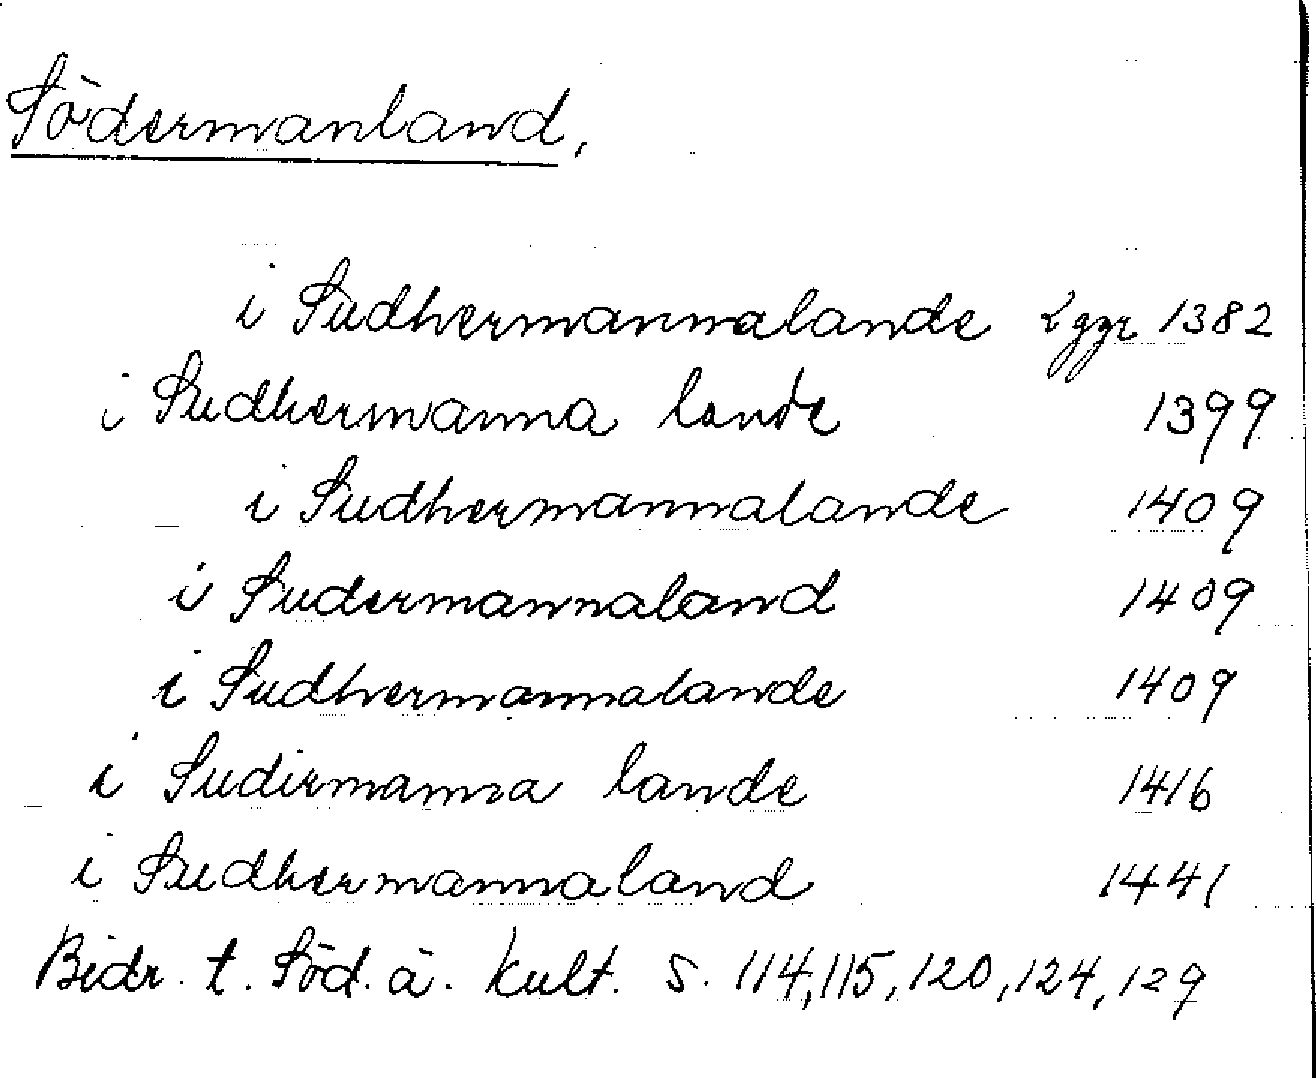 Södermanland,
i Sudhermannalande 2 ggr 1382
i Sudhermanna lande 1399
i Sudhermannalande 1409
i Sudermannaland 1409
i Sudhermannalande 1409
i Sudirmanna lande 1416
i Sudhermannaland 1441
Bidr. t. Söd. ä. Kult. S. 114, 115, 120, 124, 129